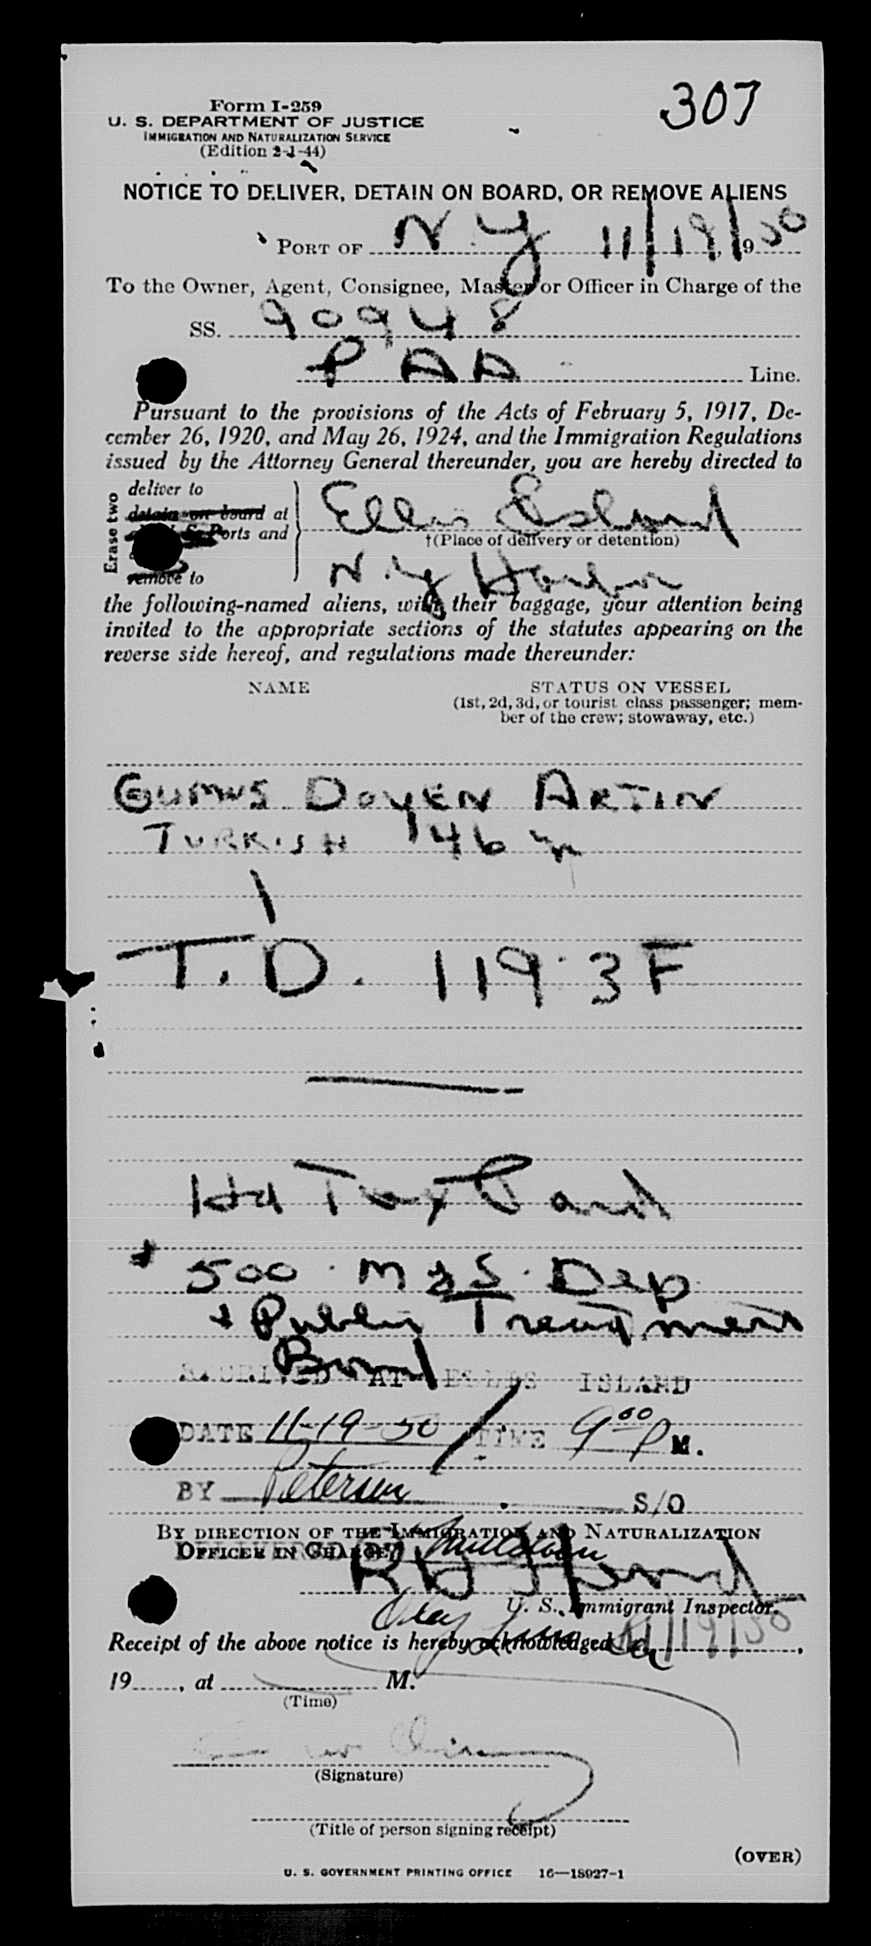 307
Form I-259
U. S. DEPARTMENT OF JUSTICE
IMMIGRATION AND NATURALIZATION SERVICE
(Edition 2-1-44)
NOTICE TO DELIVER, DETAIN ON BOARD, OR REMOVE ALIENS
PORT OF N.Y 11/19/, 1950
To the Owner, Agent, Consignee, Master or Officer in Charge of the
SS. 90948
PAA Line.
Pursuant to the provisions of the Acts of February 5, 1917, De-
cember 26, 1920, and May 26, 1924, and the Immigration Regulations
issued by the Attorney General thereunder, you are hereby directed to
Erase two
deliver to
detain on board at
Ports and
remove to
Ellis Island
†(Place of delivery or detention)
N.Y Harbor
the following-named aliens, with their baggage, your attention being
invited to the appropriate sections of the statutes appearing on the
reverse side hereof, and regulations made thereunder:
NAME STATUS ON VESSEL
(1st, 2d, 3d, or tourist class passenger; mem-
ber of the crew; stowaway, etc.)
GUMUS DOYEN ARTIN
TURKISH 46 yr
1
T.D. 119.3F
Hd Tax Paid
+ 500. Dep
+ Public Treatment
Bond
RECEIVED AT ELLIS ISLAND
DATE 11-19-50 / TIME 9 00 P M.
BY Petersen S/O
BY DIRECTION OF THE IMMIGRATION AND NATURALIZATION
OFFICER IN CHARGE:
DELIVERED BY
U. S. Immigrant Inspector.
Receipt of the above notice is hereby acknowledged 11/19/50,
19, at M.
(Time)
(Signature)
(Title of person signing receipt)
(OVER)
U. S. GOVERNMENT PRINTING OFFICE 16—18927-1